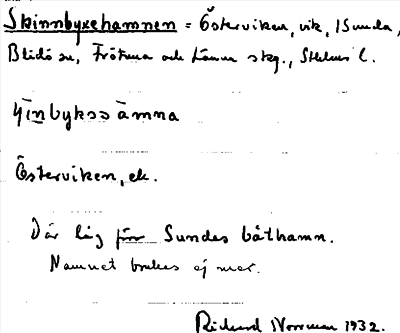 Skinnbyxehamnen = Österviken, vik, Sunda,
Blidö sn, Frötuna och Länna skg., Sthlms l.
ɧinbykssämna
Österviken, ek.
Där låg för Sundas båthamn.
Namnet brukas ej mer.
Rickard Norrman 1932.